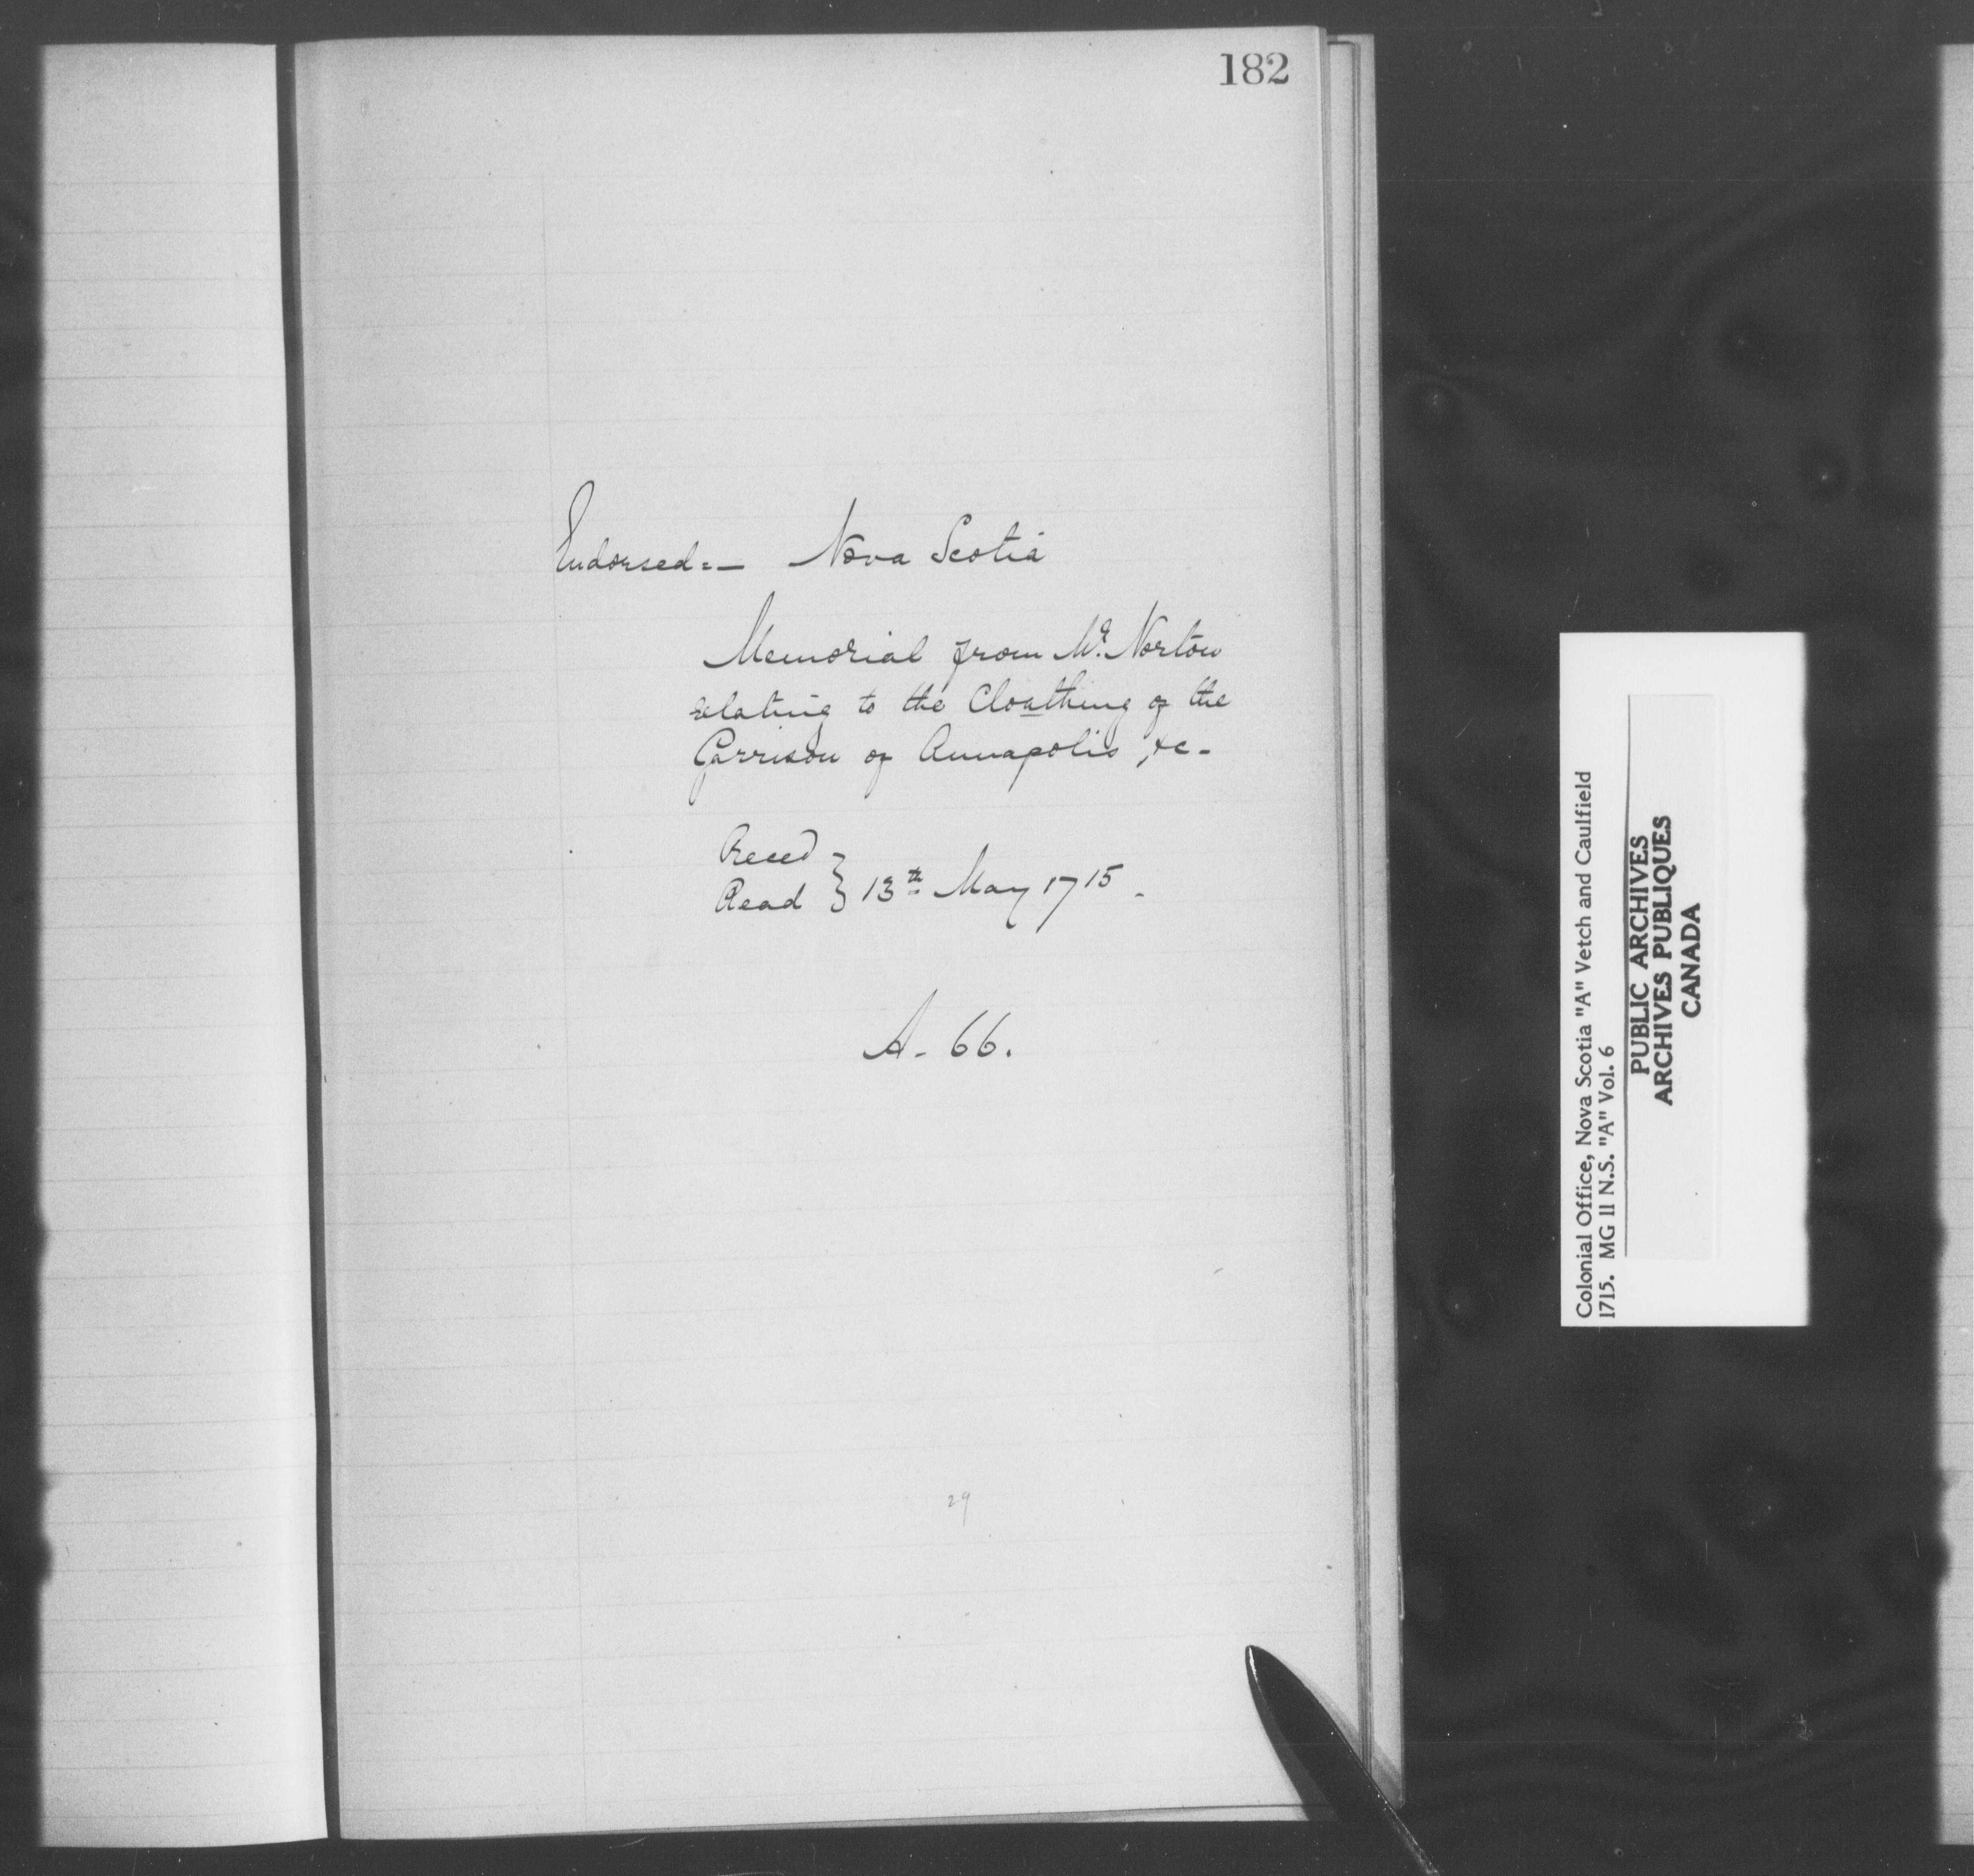 182
Endorsed:— Nova Scotia
Memorial from Mr. Norton
relating to the Cloathing of the
Garrison of Annapolis, &c-
Recd
Read } 13th May 1715.
A- 66.
29
Colonial Office, Nova Scotia "A" Vetch and Caulfield
1715. MG 11 N.S. "A" Vol. 6
PUBLIC ARCHIVES
ARCHIVES PUBLIQUES
CANADA